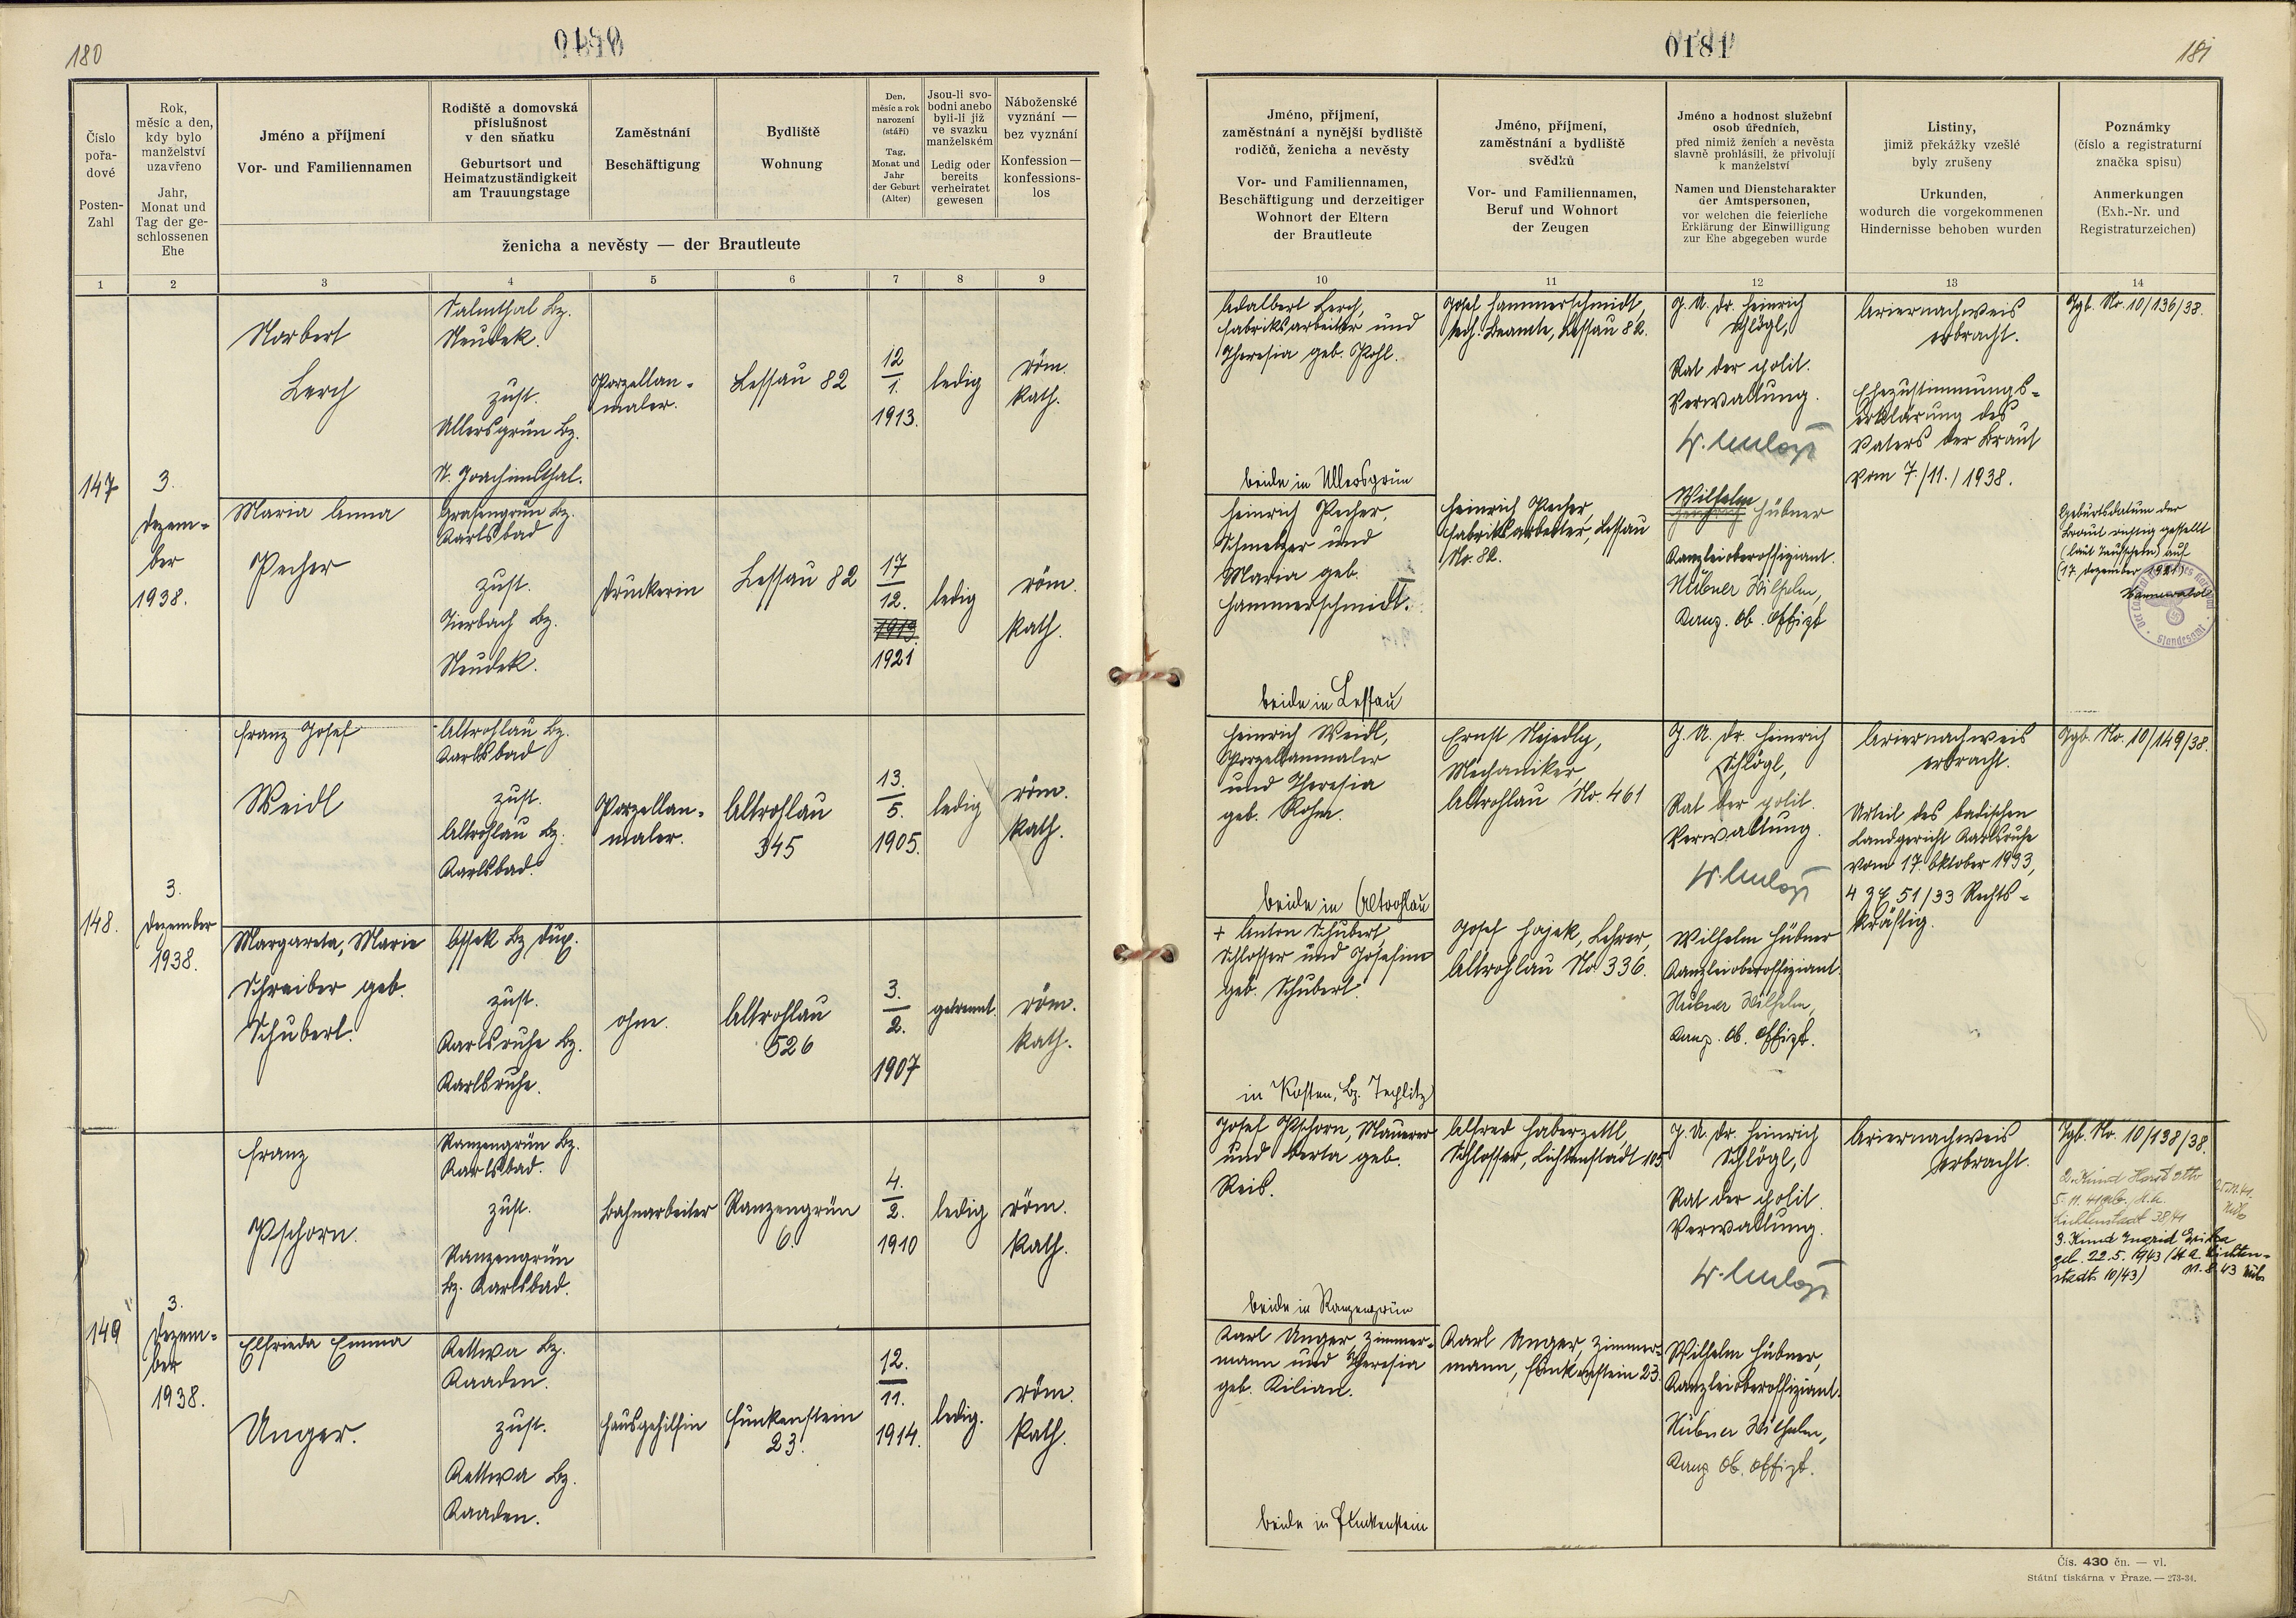 180
0180
Číslo
pořa-
dové
Posten-
Zahl
Rok,
měsíc a den,
kdy bylo
manželství
uzavřeno
Jahr,
Monat und
Tag der ge-
schlossenen
Ehe
Jméno a příjmení
Vor- und Familiennamen
Rodiště a domovská
příslušnost
v den sňatku
Geburtsort und
Heimatzuständigkeit
am Trauungstage
Zaměstnání
Beschäftigung
Bydliště
Wohnung
Den,
měsíc a rok
narození
(stáří)
Tag,
Monat und
Jahr
der Geburt
(Alter)
Jsou-li svo-
bodni anebo
byli-li již
ve svazku
manželském
Ledig oder
bereits
verheiratet
gewesen
Náboženské
vyznání —
bez vyznání
Konfession —
konfessions-
los
ženicha a nevěsty — der Brautleute
1
2
3
4
5
6
7
8
9
147
3.
Dezem-
ber
1938.
Norbert
Lerch
Salmthal Bz.
Neudek.
zust.
Ullersgrün Bz.
St. Joachimsthal.
Porzellan-
maler.
Lessau 82
12
1.
1913.
ledig
röm.
kath.
Maria Anna
Pecher
Grasengrün Bz.
Karlsbad
zust.
Tierbach Bz.
Neudek.
Druckerin
Lessau 82
17
12.
1913.
1921
ledig
röm.
kath.
148.
3.
Dezember
1938.
Franz Josef
Weidl
Altrohlau Bz.
Karlsbad
zust.
Altrohlau Bz.
Karlsbad.
Porzellan-
maler.
Altrohlau
345
13.
5.
1905.
ledig
röm.
kath.
Margareta, Marie
Schreiber geb.
Schubert.
Ossek Bz Dux.
zust.
Karlsruhe Bz.
Karlsruhe.
ohne.
Altrohlau
526
3.
2.
1907
getrennt.
röm.
kath.
149
3.
Dezem-
ber
1938.
Franz
Pschorn.
Ranzengrün Bz.
Karlsbad.
zust.
Ranzengrün
Bz. Karlsbad.
Bahnarbeiter
Ranzengrün
6.
4.
2.
1910
ledig
röm.
kath.
Elfrieda Emma
Unger.
Kettwa Bz.
Kaaden.
zust.
Kettwa Bz.
Kaaden.
Hausgehilfin
Funkenstein
23.
12.
11.
1914.
ledig.
röm.
kath.
0181
181
Jméno, příjmení,
zaměstnání a nynější bydliště
rodičů, ženicha a nevěsty
Vor- und Familiennamen,
Beschäftigung und derzeitiger
Wohnort der Eltern
der Brautleute
Jméno, příjmení,
zaměstnání a bydliště
svědků
Vor- und Familiennamen,
Beruf und Wohnort
der Zeugen
Jméno a hodnost služební
osob úředních,
před nimiž ženich a nevěsta
slavně prohlásili, že přivolují
k manželství
Namen und Dienstcharakter
der Amtspersonen,
vor welchen die feierliche
Erklärung der Einwilligung
zur Ehe abgegeben wurde
Listiny,
jimiž překážky vzešlé
byly zrušeny
Urkunden,
wodurch die vorgekommenen
Hindernisse behoben wurden
Poznámky
(číslo a registraturní
značka spisu)
Anmerkungen
(Exh.-Nr. und
Registraturzeichen)
10
11
12
13
14
Adalbert Lerch,
Fabriksarbeiter und
Theresia geb. Pohl.
beide in Ullersgrün
Josef Hammerschmidt,
tech. Beamte, Lessau 82.
J. A. Dr. Heinrich
Schlögl,
Rat der polit.
Verwaltung.
Ariernachweis
erbracht.
Ehezustimmungs-
erklärung des
Vaters der Braut
vom 7./11./1938.
Tgb. No. 10/136/38.
Heinrich Pecher,
Schmelzer und
Maria geb.
Hammerschmidt.
beide in Lessau
Heinrich Pecher
Fabriksarbeiter, Lessau
No. 82.
Wilhelm
Heinrich Hübner
Kanzleioberoffiziant.
Hübner Wilhelm,
Kanz. Ob. Offizt
Geburtsdatum der
Braut richtig gestellt
(laut Taufschein) auf
(17. Dezember 1921)
Standesamt
Heinrich Weidl,
Porzellanmaler
und Theresia
geb. Rohm.
beide in Altrohlau
Ernst Nejedly,
Mechaniker,
Altrohlau No. 461
J. A. Dr. Heinrich
Schlögl,
Rat der polit.
Verwaltung.
Ariernachweis
erbracht.
Urteil des badischen
Landgericht Karlsruhe
vom 17. Oktober 1933,
4 ZR 51/33 Rechts-
kräftig.
Tgb. No. 10/149/38.
+ Anton Schubert,
Schlosser und Josefine
geb. Schubert.
in Kosten, Bz. Teplitz
Josef Hajek, Lehrer,
Altrohlau No 336.
Wilhelm Hübner
Kanzleioberoffiziant.
Hübner Wilhelm,
Kanz. Ob. Offizt.
Josef Pschorn, Maurer
und Berta geb.
Reis.
beide in Ranzengrün
Alfred Haberzettl,
Schlosser, Lichtenstadt 105
J. A. Dr. Heinrich
Schlögl,
Rat der polit.
Verwaltung.
Ariernachweis
erbracht.
Tgb. No. 10/138/38.
2. Kind Horst Otto
5. 11. 41 geb. St. A.
Lichtenstadt 38/41
3. Kind Ingrid Erika
geb. 22.5.1943 (St A. Lichten-
stadt 10/43) 11.8.43
Karl Unger, Zimmer-
mann und Theresia
geb. Kilian.
beide in Funkenstein
Karl Unger, Zimmer-
mann, Funkenstein 23
Wilhelm Hübner,
Kanzleioberoffiziant.
Hübner Wilhelm,
Kanz Ob. Offizt.
Čís. 430 čn. — vl.
Státní tiskárna v Praze. — 273-34.